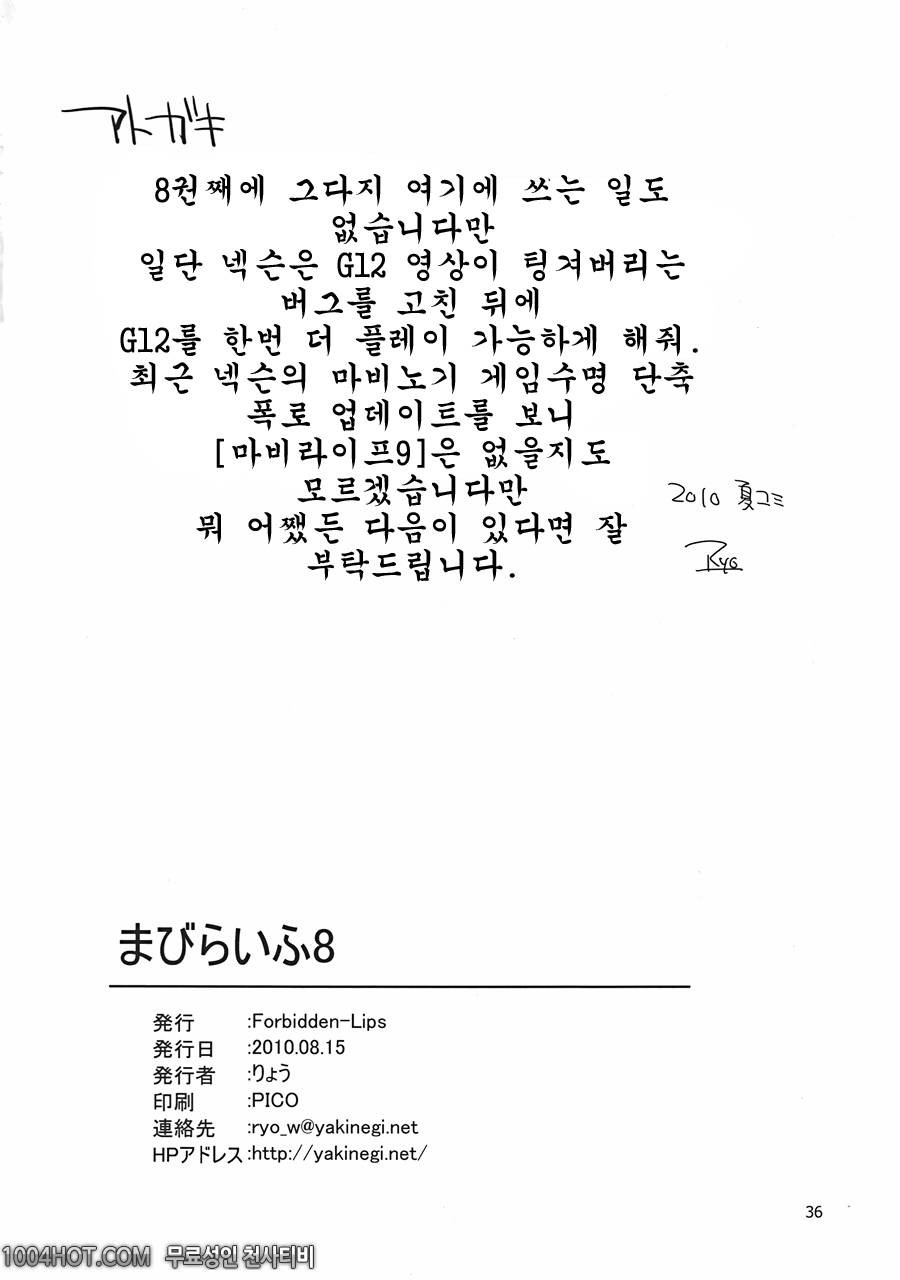 アトガキ
8권째에 그다지 여기에 쓰는 일도
없습니다만
일단 넥슨은 G12 영상이 팅겨버리는
버그를 고친 뒤에
G12를 한번 더 플레이 가능하게 해줘.
최근 넥슨의 마비노기 게임수명 단축
폭로 업데이트를 보니
[마비라이프9]은 없을지도
모르겠습니다만
뭐 어쨌든 다음이 있다면 잘
부탁드립니다.
2010 夏コミ
Ryo
まびらいふ8
発行 :Forbidden-Lips
発行日 :2010.08.15
発行者 :りょう
印刷 :PICO
連絡先 :ryo_w@yakinegi.net
HPアドレス:http://yakinegi.net/
36
1004HOT.COM 무료성인 천사티비